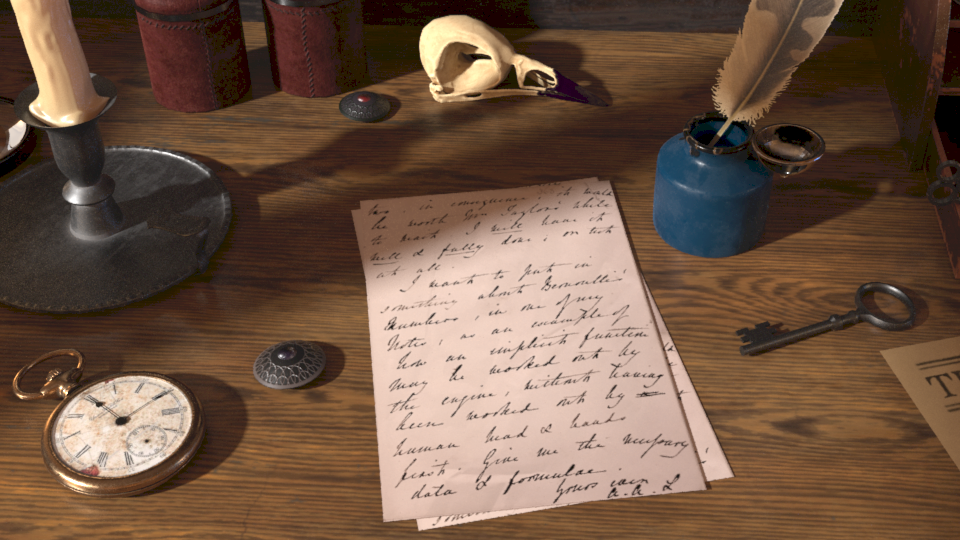 in consequence
the worth
to mark I will have it
well & fully done; or not
at all.
I want to put in
something about Bernoulli's
Numbers, in one of my
Notes, as an example of
how an implicit function
may be worked out by
the engine, without having
been worked out by
human head & hands
first. Give me the necessary
data & formulae.
Yours
A. A. L
T